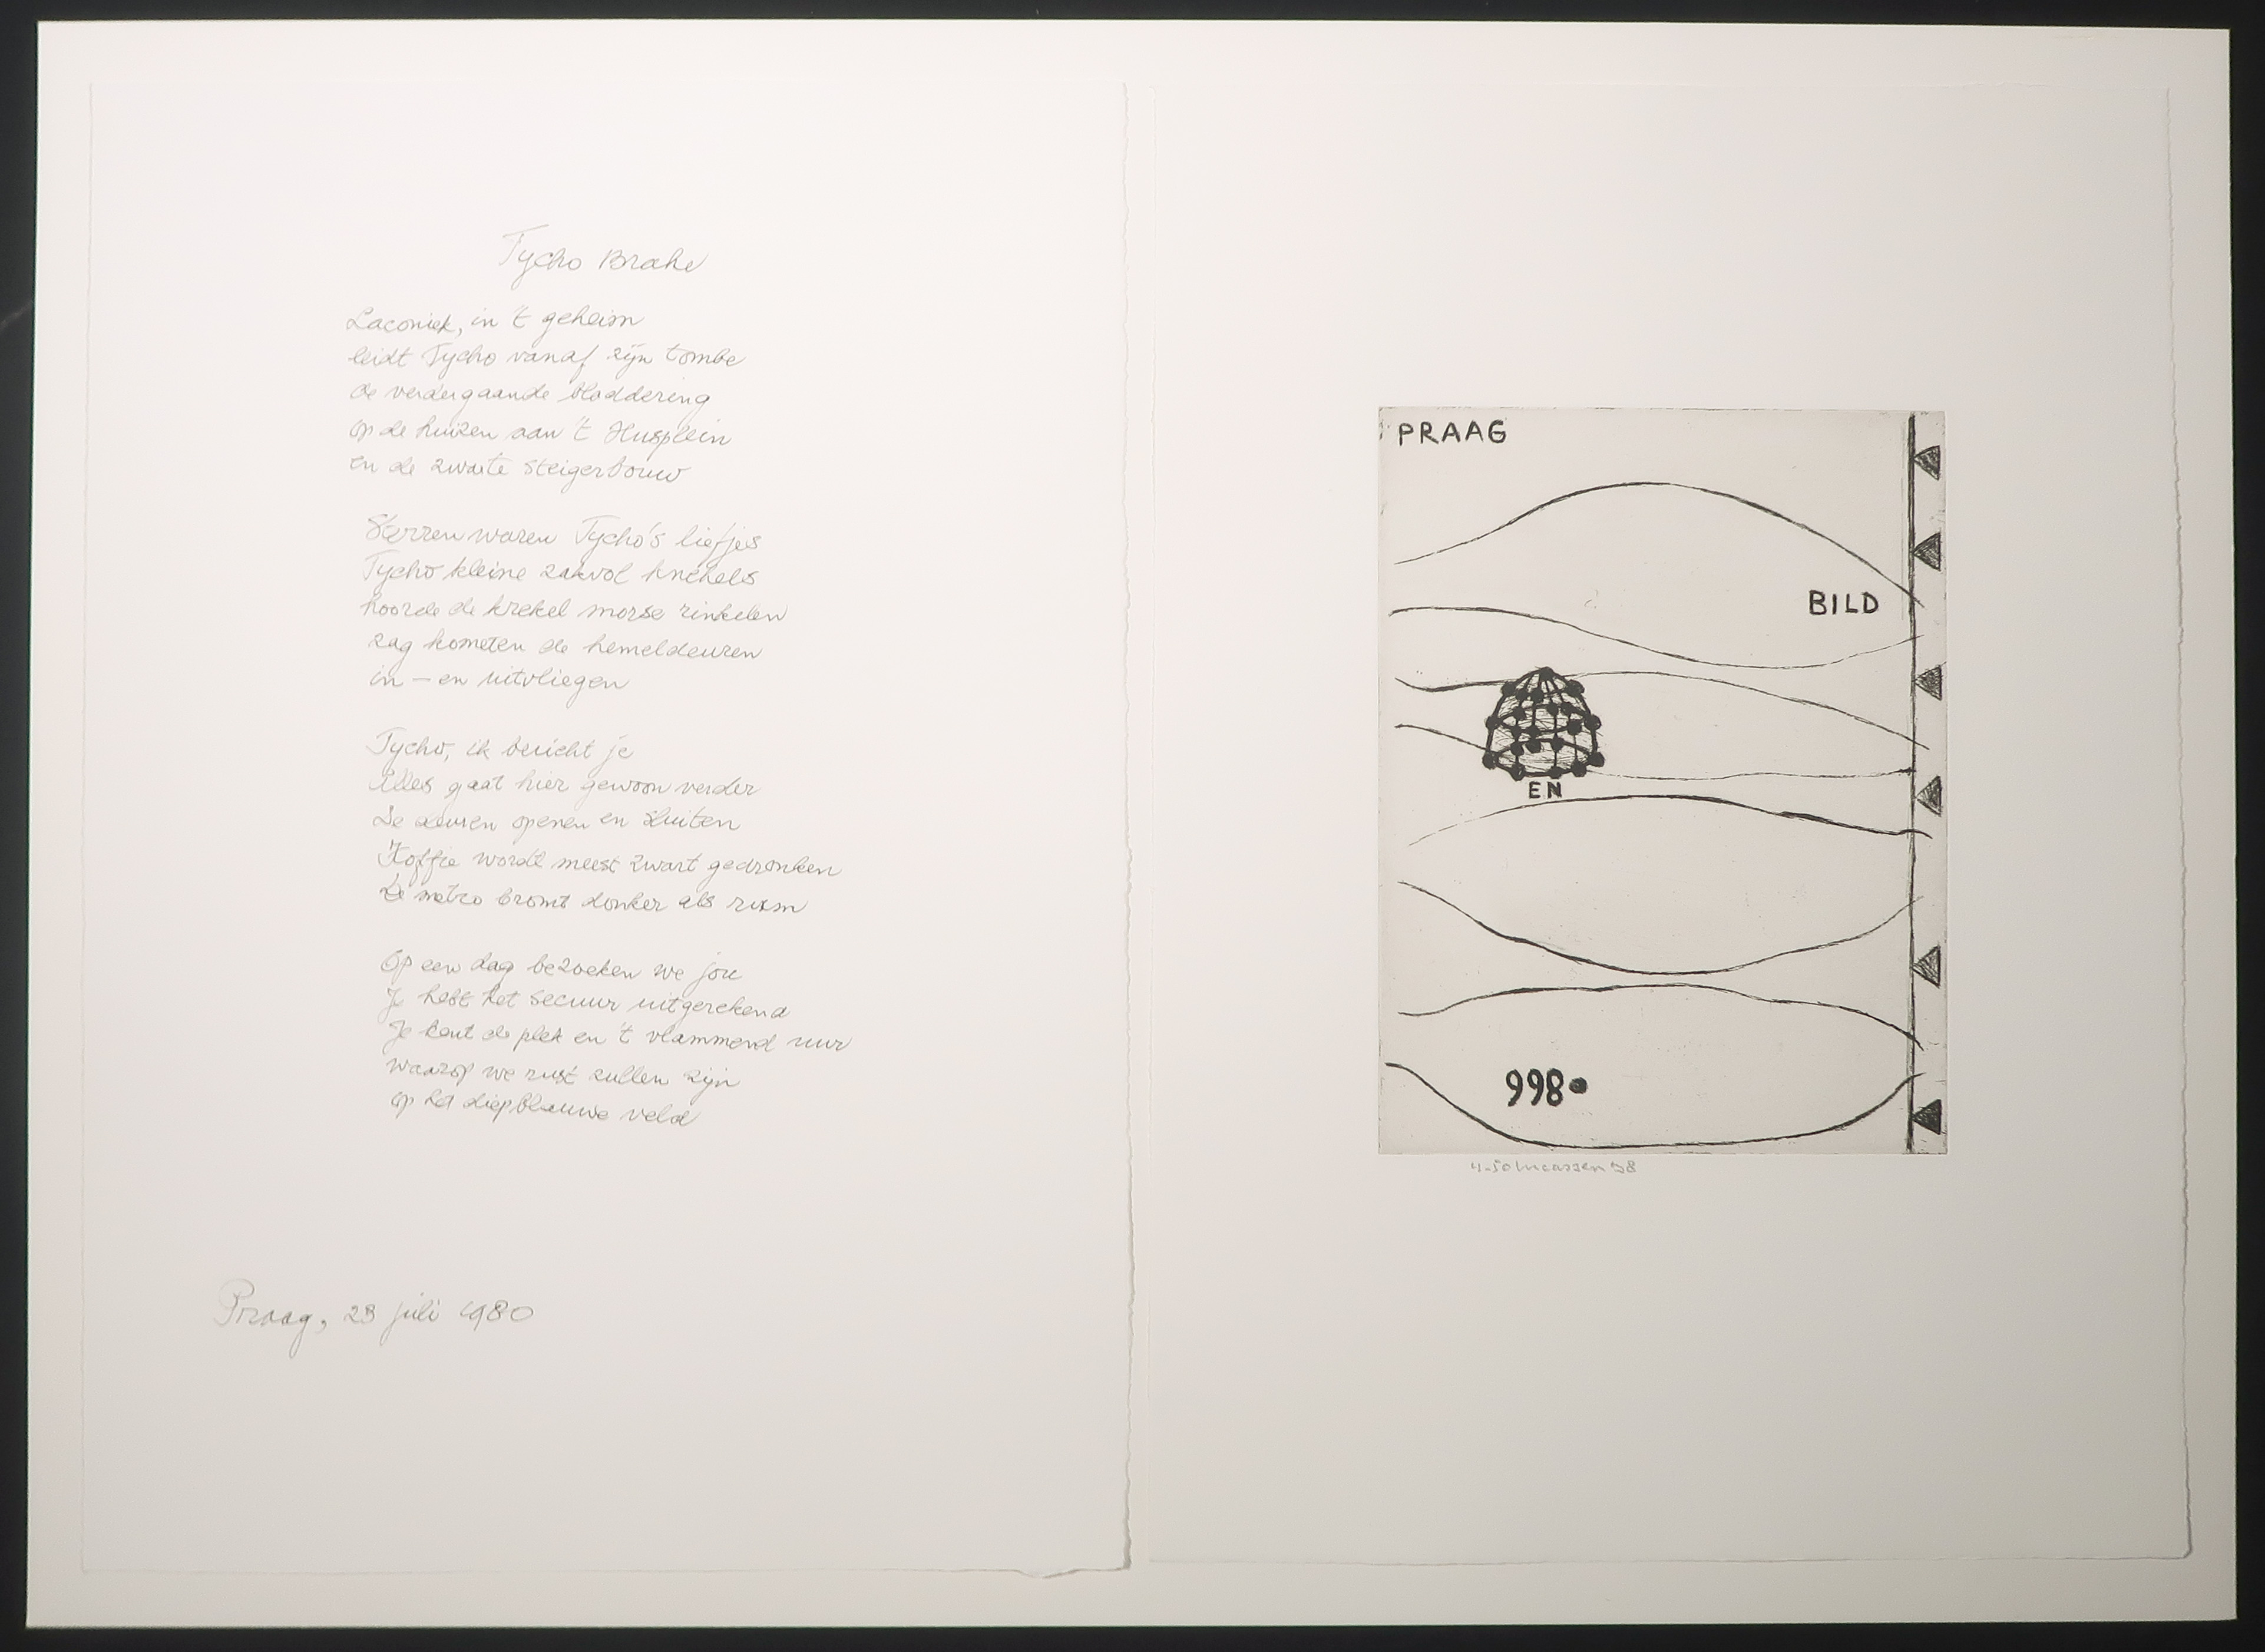 Tycho Brahe
Laconiek, in 't geheim
leidt Tycho vanaf zijn tombe
de verdergaande bladdering
op de huizen aan 't Husplein
en de zwarte steigerbouw
Sterren waren Tycho's liefjes
Tycho kleine zakvol knekels
hoorde de krekel morse rinkelen
zag kometen de hemeldeuren
in - en uitvliegen
Tycho, ik bericht je
Alles gaat hier gewoon verder
De deuren openen en sluiten
Koffie wordt meest zwart gedronken
De metro bromt donker als rum
Op een dag bezoeken we jou
Je hebt het secuur uitgerekend
Je kent de plek en 't vlammend uur
waarop we rust zullen zijn
op het diepblauwe veld
Praag, 23 juli 1980
PRAAG
BILD
EN
998
4-50 Lucassen 98